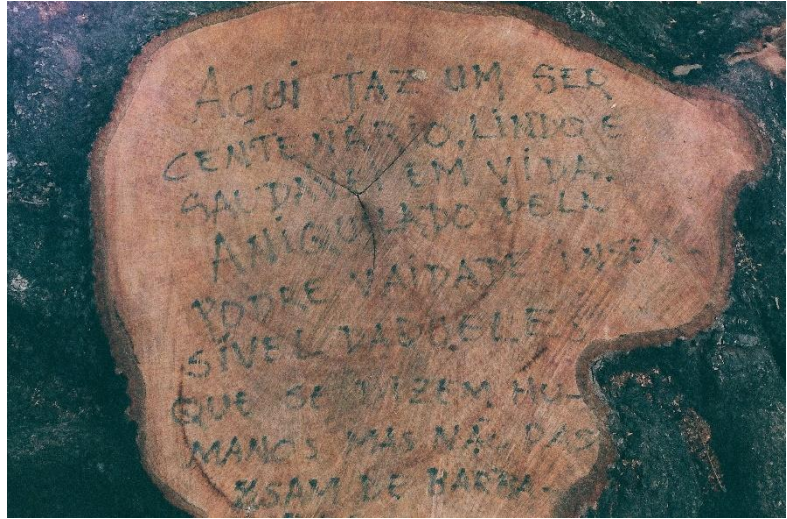 AQUI JAZ UM SER
CENTENÁRIO, LINDO E
SAUDAVEL EM VIDA.
ANIGUILADO PELA
PODRE VAIDADE INSEN-
SÍVEL DAQUELES
QUE SE DIZEM HU-
MANOS MAS NÃO PAS
SAM DE BARBA-